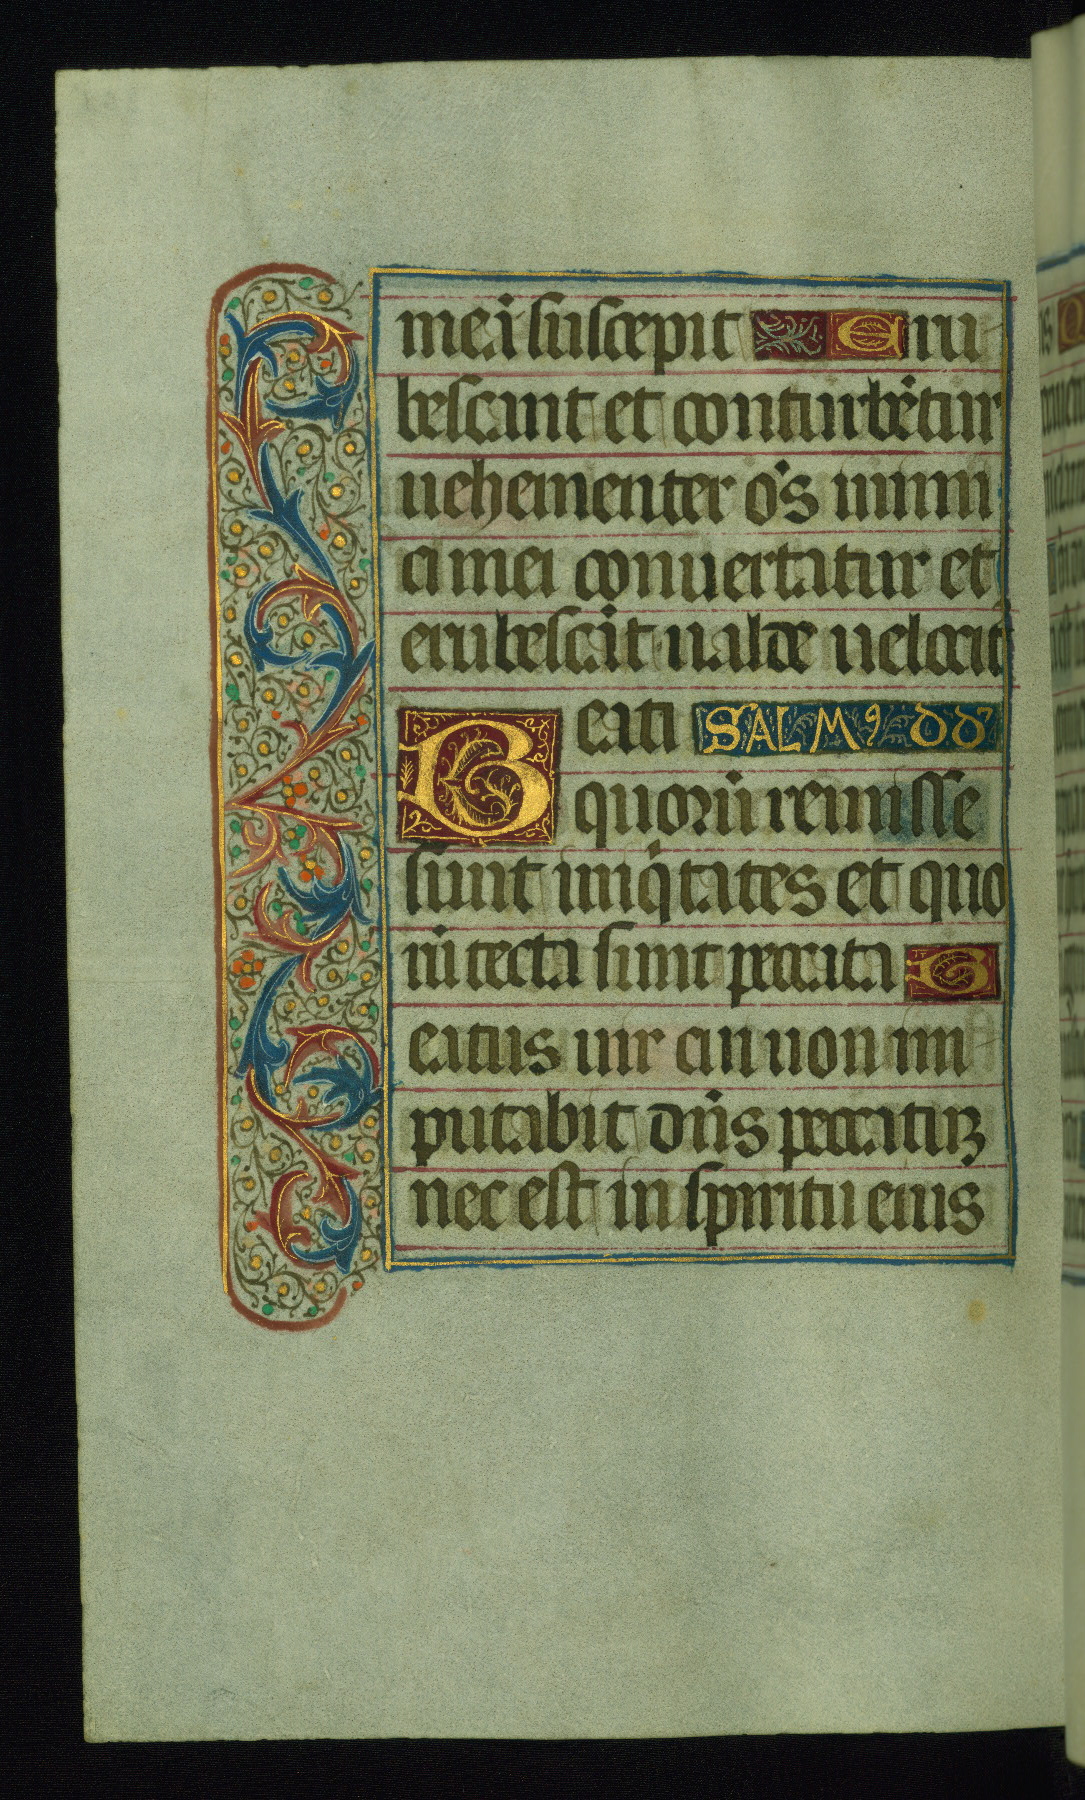 mei suscepit Eru-
bescant et conturbētur
uehementer oēs inimi
ci mei conuertatur et
erubescāt ualde uelocit
Beati SALMꝰ DD
quorū remisse
sunt iniqͥtates et quo
rū tecta sunt peccata B
eatus uir cui non im-
putabit dn̄s peccatuꝫ
nec est in spiritu eius